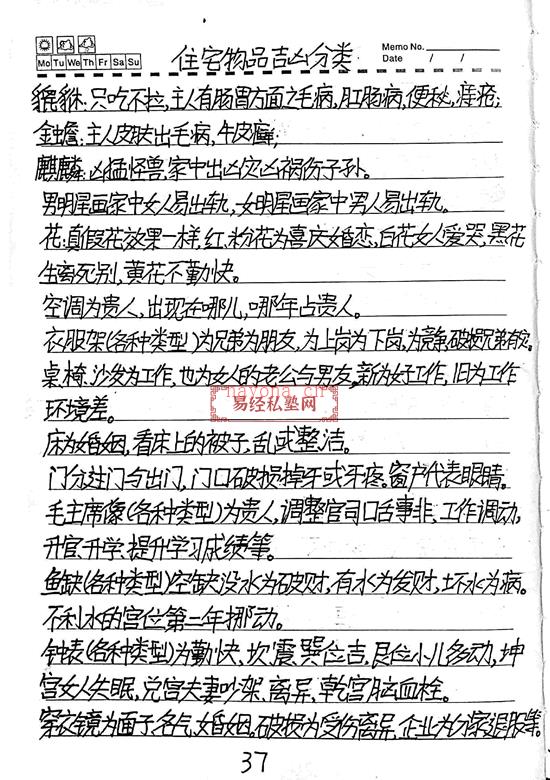 Mo Tu We Th Fr Sa Su
住宅物品吉凶分类
Memo No.
Date / /
貔貅:只吃不拉,主人有肠胃方面之毛病,肛肠病,便秘,痔疮;
金蟾:主人皮肤出毛病,牛皮癣;
麒麟:凶猛怪兽,家中出凶灾凶祸伤子孙。
男明星画家中女人易出轨,女明星画家中男人易出轨。
花:真假花效果一样,红、粉花为喜庆婚恋,白花女人爱哭,黑花
生离死别,黄花不勤快。
空调为贵人,出现在哪儿,哪年占贵人。
衣服架(各种类型)为兄弟为朋友,为上岗为下岗,为竞争,破损兄弟有灾。
桌、椅、沙发为工作,也为女人的老公与男友,新为好工作,旧为工作
环境差。
nayona.cn
易经私塾网
床为婚姻,看床上的被子,乱或整洁。
门分进门与出门,门口破损掉牙或牙疼。窗户代表眼睛。
毛主席像(各种类型)为贵人,调整官司口舌事非、工作调动,
升官、升学、提升学习成绩等。
鱼缺(各种类型)空缺没水为破财,有水为发财,坏水为病。
不利水的宫位,第二年挪动。
钟表(各种类型)为勤快,坎、震、巽位吉,艮位小儿多动,坤
宫女人失眠,兑宫夫妻吵架、离异,乾宫脑血栓。
穿衣镜为面子、名气、婚姻。破损为受伤离异,企业为分家退股等。
37